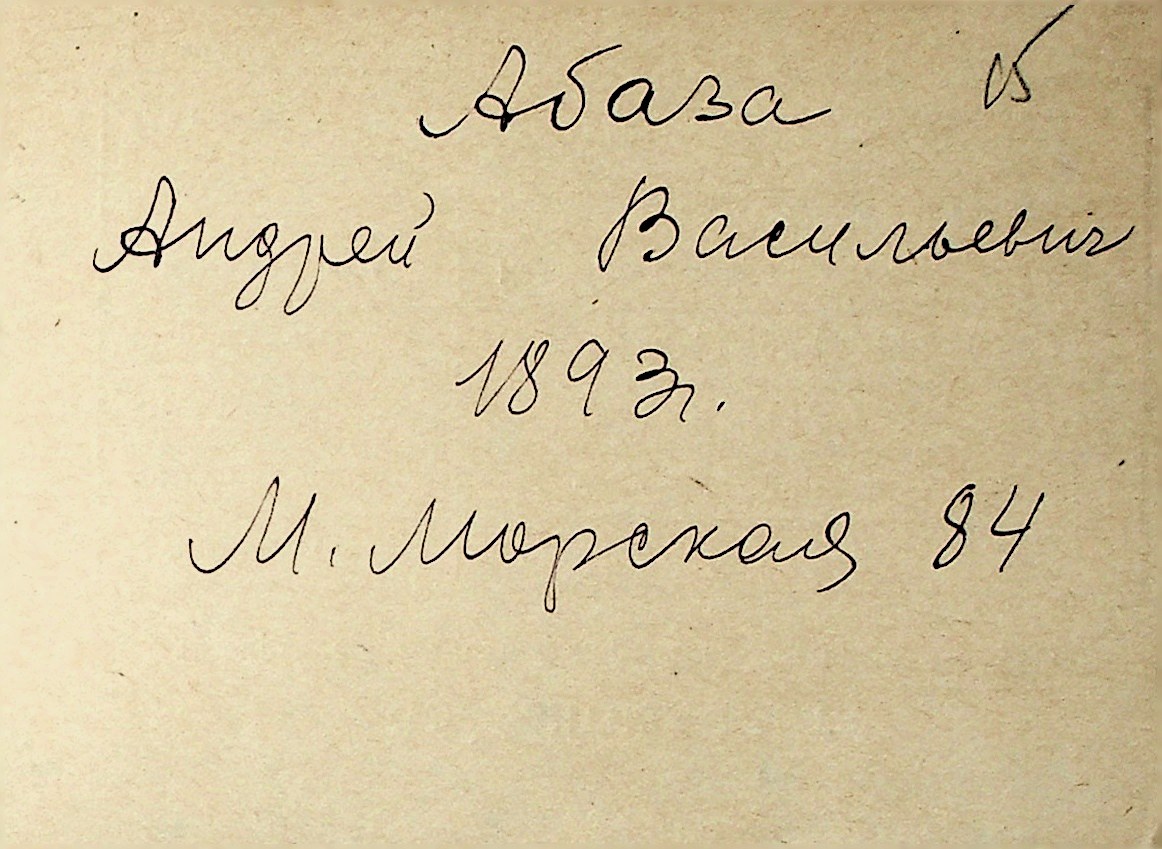 Абаза
Андрей Васильевич
1893г.
М. Морская 84